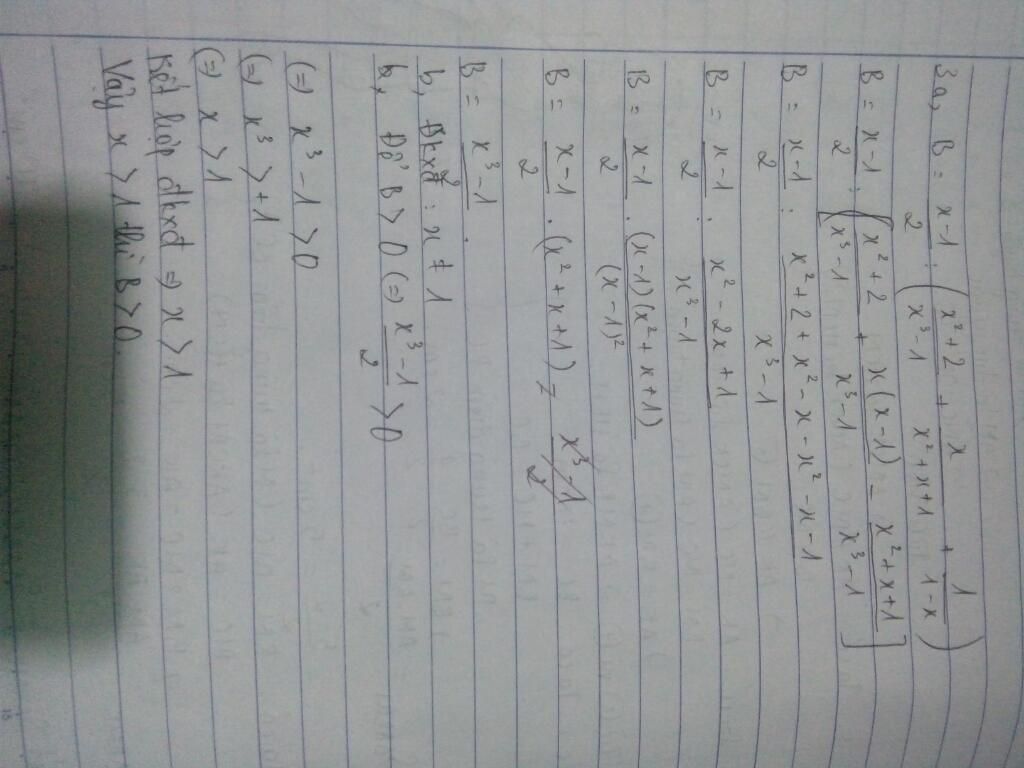 3a, B = x-1/2 : (x²+2/x³-1 + x/x²+x+1 + 1/1-x)
B = x-1/2 : [x²+2/x³-1 + x(x-1)/x³-1 - x²+x+1/x³-1]
B = x-1/2 : x²+2+x²-x-x²-x-1/x³-1
B = x-1/2 : x²-2x+1/x³-1
B = x-1/2 . (x-1)(x²+x+1)/(x-1)²
B = x-1/2 . (x²+x+1) = x³-1/2
B = x³-1/2 .
b, Đkxđ : x ≠ 1
b, Để B > 0 (=) x³-1/2 > 0
(=) x³-1 > 0
(=) x³ > +1
(=) x > 1
Kết hợp đkxđ => x > 1
Vậy x > 1 thì B > 0.